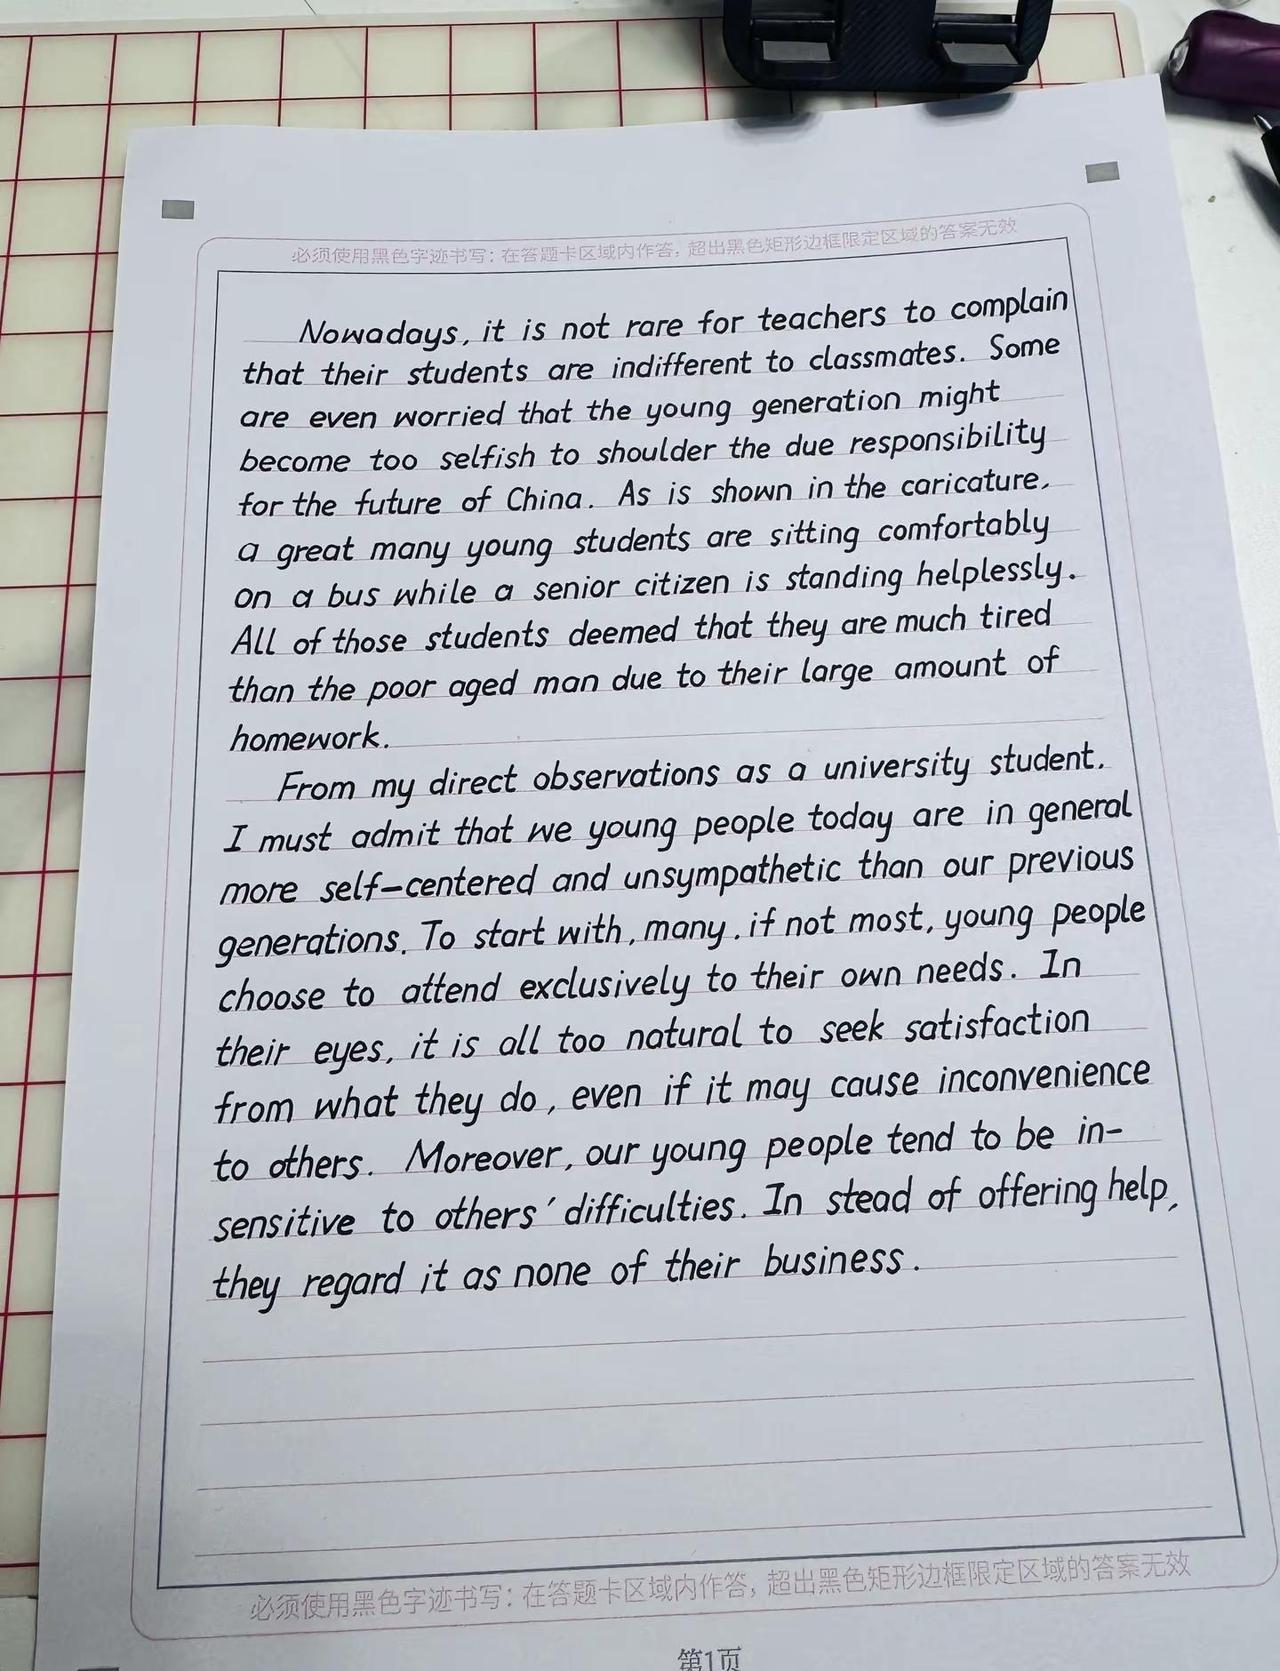 必须使用黑色字迹书写：在答题卡区域内作答，超出黑色矩形边框限定区域的答案无效
Nowadays, it is not rare for teachers to complain
that their students are indifferent to classmates. Some
are even worried that the young generation might
become too selfish to shoulder the due responsibility
for the future of China. As is shown in the caricature,
a great many young students are sitting comfortably
on a bus while a senior citizen is standing helplessly.
All of those students deemed that they are much tired
than the poor aged man due to their large amount of
homework.
From my direct observations as a university student.
I must admit that we young people today are in general
more self-centered and unsympathetic than our previous
generations. To start with, many, if not most, young people
choose to attend exclusively to their own needs. In
their eyes, it is all too natural to seek satisfaction
from what they do, even if it may cause inconvenience
to others. Moreover, our young people tend to be in-
sensitive to others' difficulties. In stead of offering help,
they regard it as none of their business.
必须使用黑色字迹书写：在答题卡区域内作答，超出黑色矩形边框限定区域的答案无效
第1页